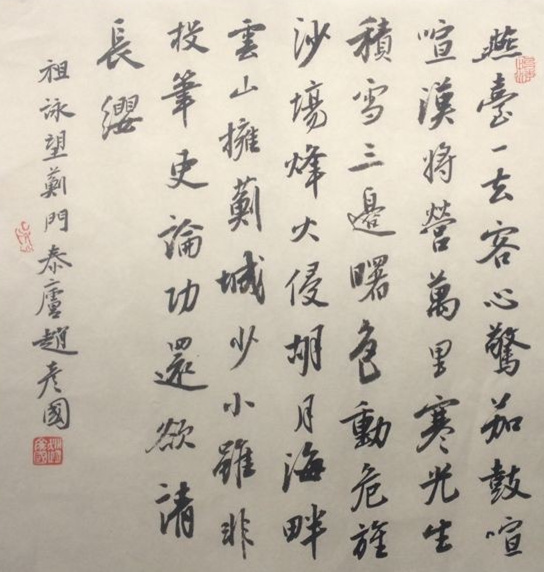 燕臺一去客心驚茄鼓喧
喧漢將營萬里寒光生
積雪三邊曙色動危旌
沙場烽火侵胡月海畔
雲山擁薊城少小雖非
投筆吏論功還欲請
長纓
祖詠望薊門泰廬趙彥國